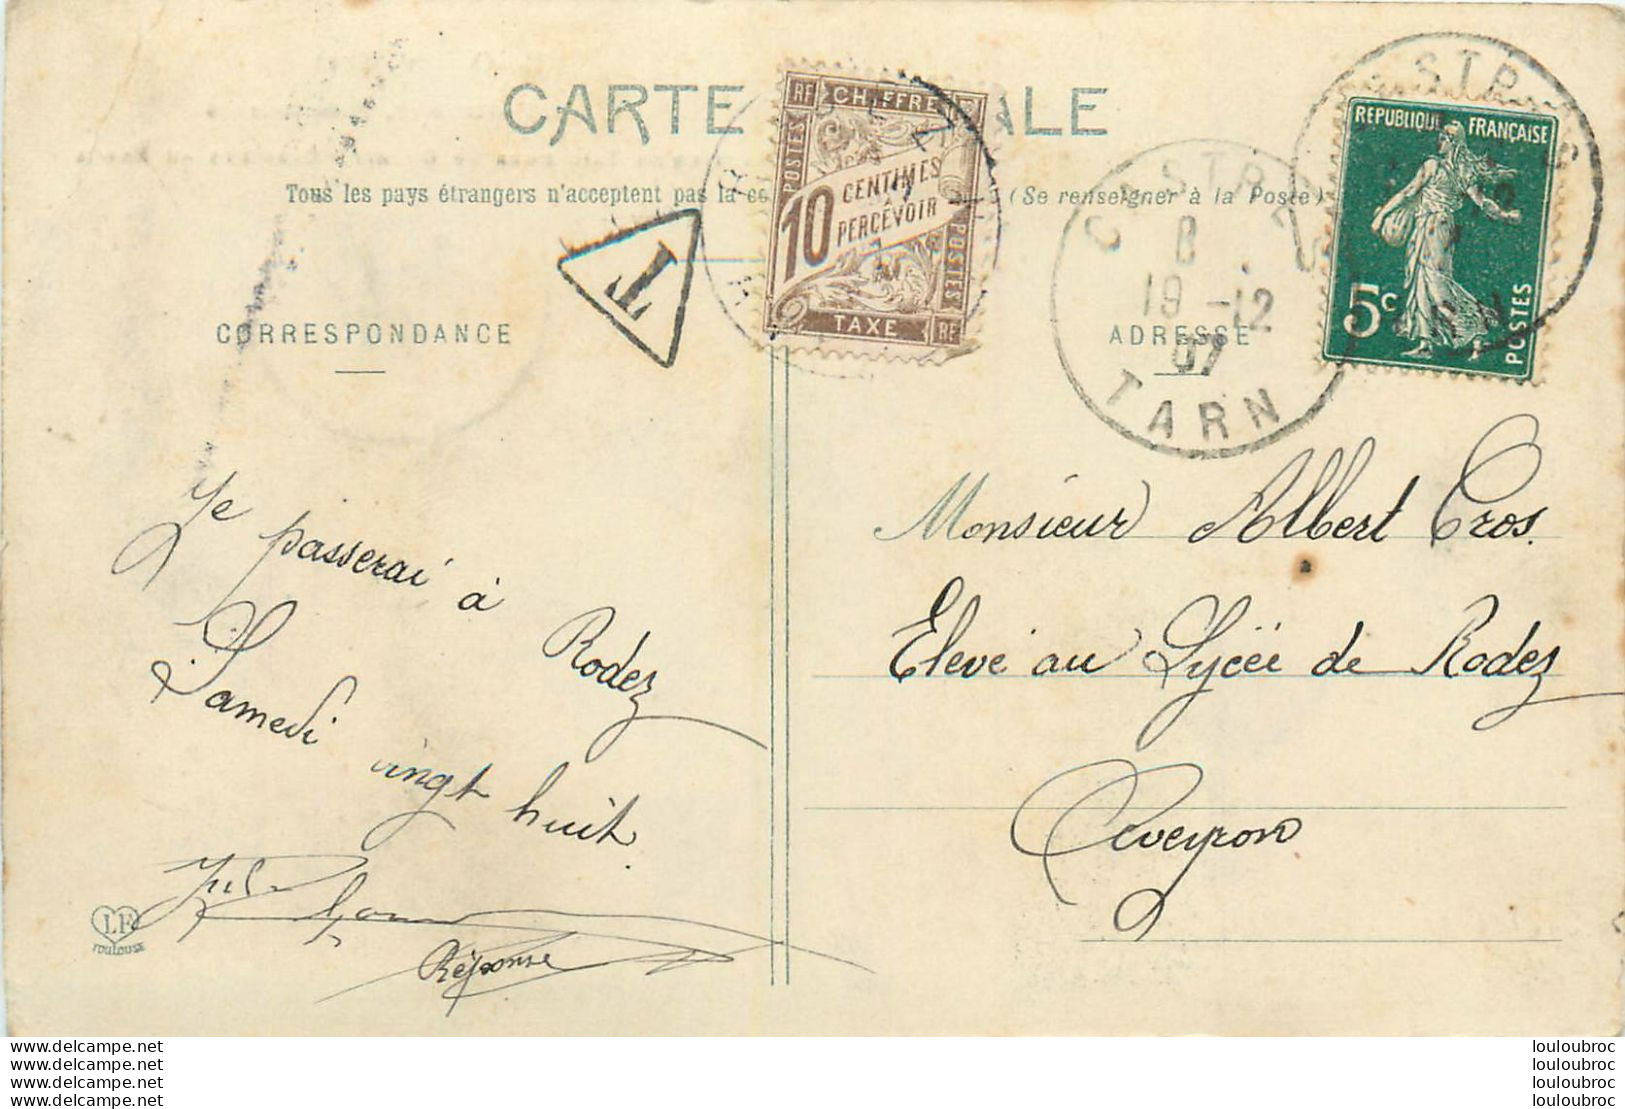 CARTE ALE
Tous les pays étrangers n'acceptent pas la co (Se renseigner à la Poste)
RF CHIFFRE
POSTES
10 CENTIMES
A
PERCEVOIR
POSTES
TAXE RF
T
CASTRES
8
19 -12
07
TARN
REPUBLIQUE FRANÇAISE
5c
POSTES
CORRESPONDANCE
ADRESSE
Je passerai à Rodez
Samedi vingt huit.
Réponse
LF
TOULOUSE
Monsieur Albert Cros.
Eleve au Lycée de Rodez
Aveyron
www.delcampe.net
www.delcampe.net
www.delcampe.net
www.delcampe.net
louloubroc
louloubroc
louloubroc
louloubroc